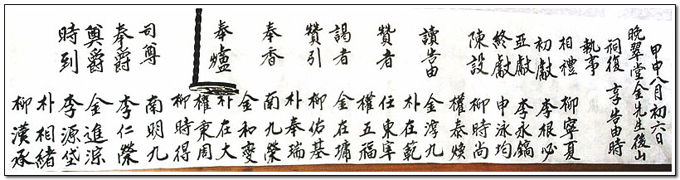 甲申八月初六日
晩翠堂金先生後山
祠後享告由時
執事
相禮 柳寧夏
初獻 李根必
亞獻 李永鎬
終獻 申泳均
陳設 柳時尚
權泰煥
讀告由 金淳九
朴在範
贊者 任東宰
權五福
謁者 金在墉
贊引 柳佑基
朴奉瑞
奉香 南九榮
金和燮
奉爐 朴在大
權秉周
柳時得
司尊 南明九
奉爵 李仁榮
奠爵 金進淙
時到 李源岱
朴相緖
柳漢承